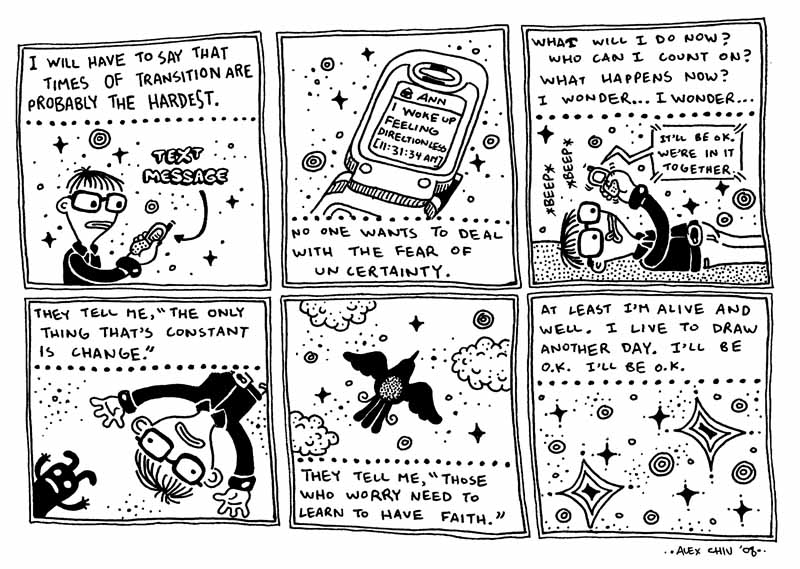 I WILL HAVE TO SAY THAT
TIMES OF TRANSITION ARE
PROBABLY THE HARDEST.
TEXT
MESSAGE
ANN
I WOKE UP
FEELING
DIRECTIONLESS
[11:31:34 AM]
NO ONE WANTS TO DEAL
WITH THE FEAR OF
UN CERTAINTY.
WHAT WILL I DO NOW?
WHO CAN I COUNT ON?
WHAT HAPPENS NOW?
I WONDER... I WONDER...
*BEEP*
*BEEP*
IT'LL BE O.K.
WE'RE IN IT
TOGETHER.
THEY TELL ME, "THE ONLY
THING THAT'S CONSTANT
IS CHANGE."
THEY TELL ME, "THOSE
WHO WORRY NEED TO
LEARN TO HAVE FAITH."
AT LEAST I'M ALIVE AND
WELL. I LIVE TO DRAW
ANOTHER DAY. I'LL BE
O.K. I'LL BE O.K.
..ALEX CHIU '08..